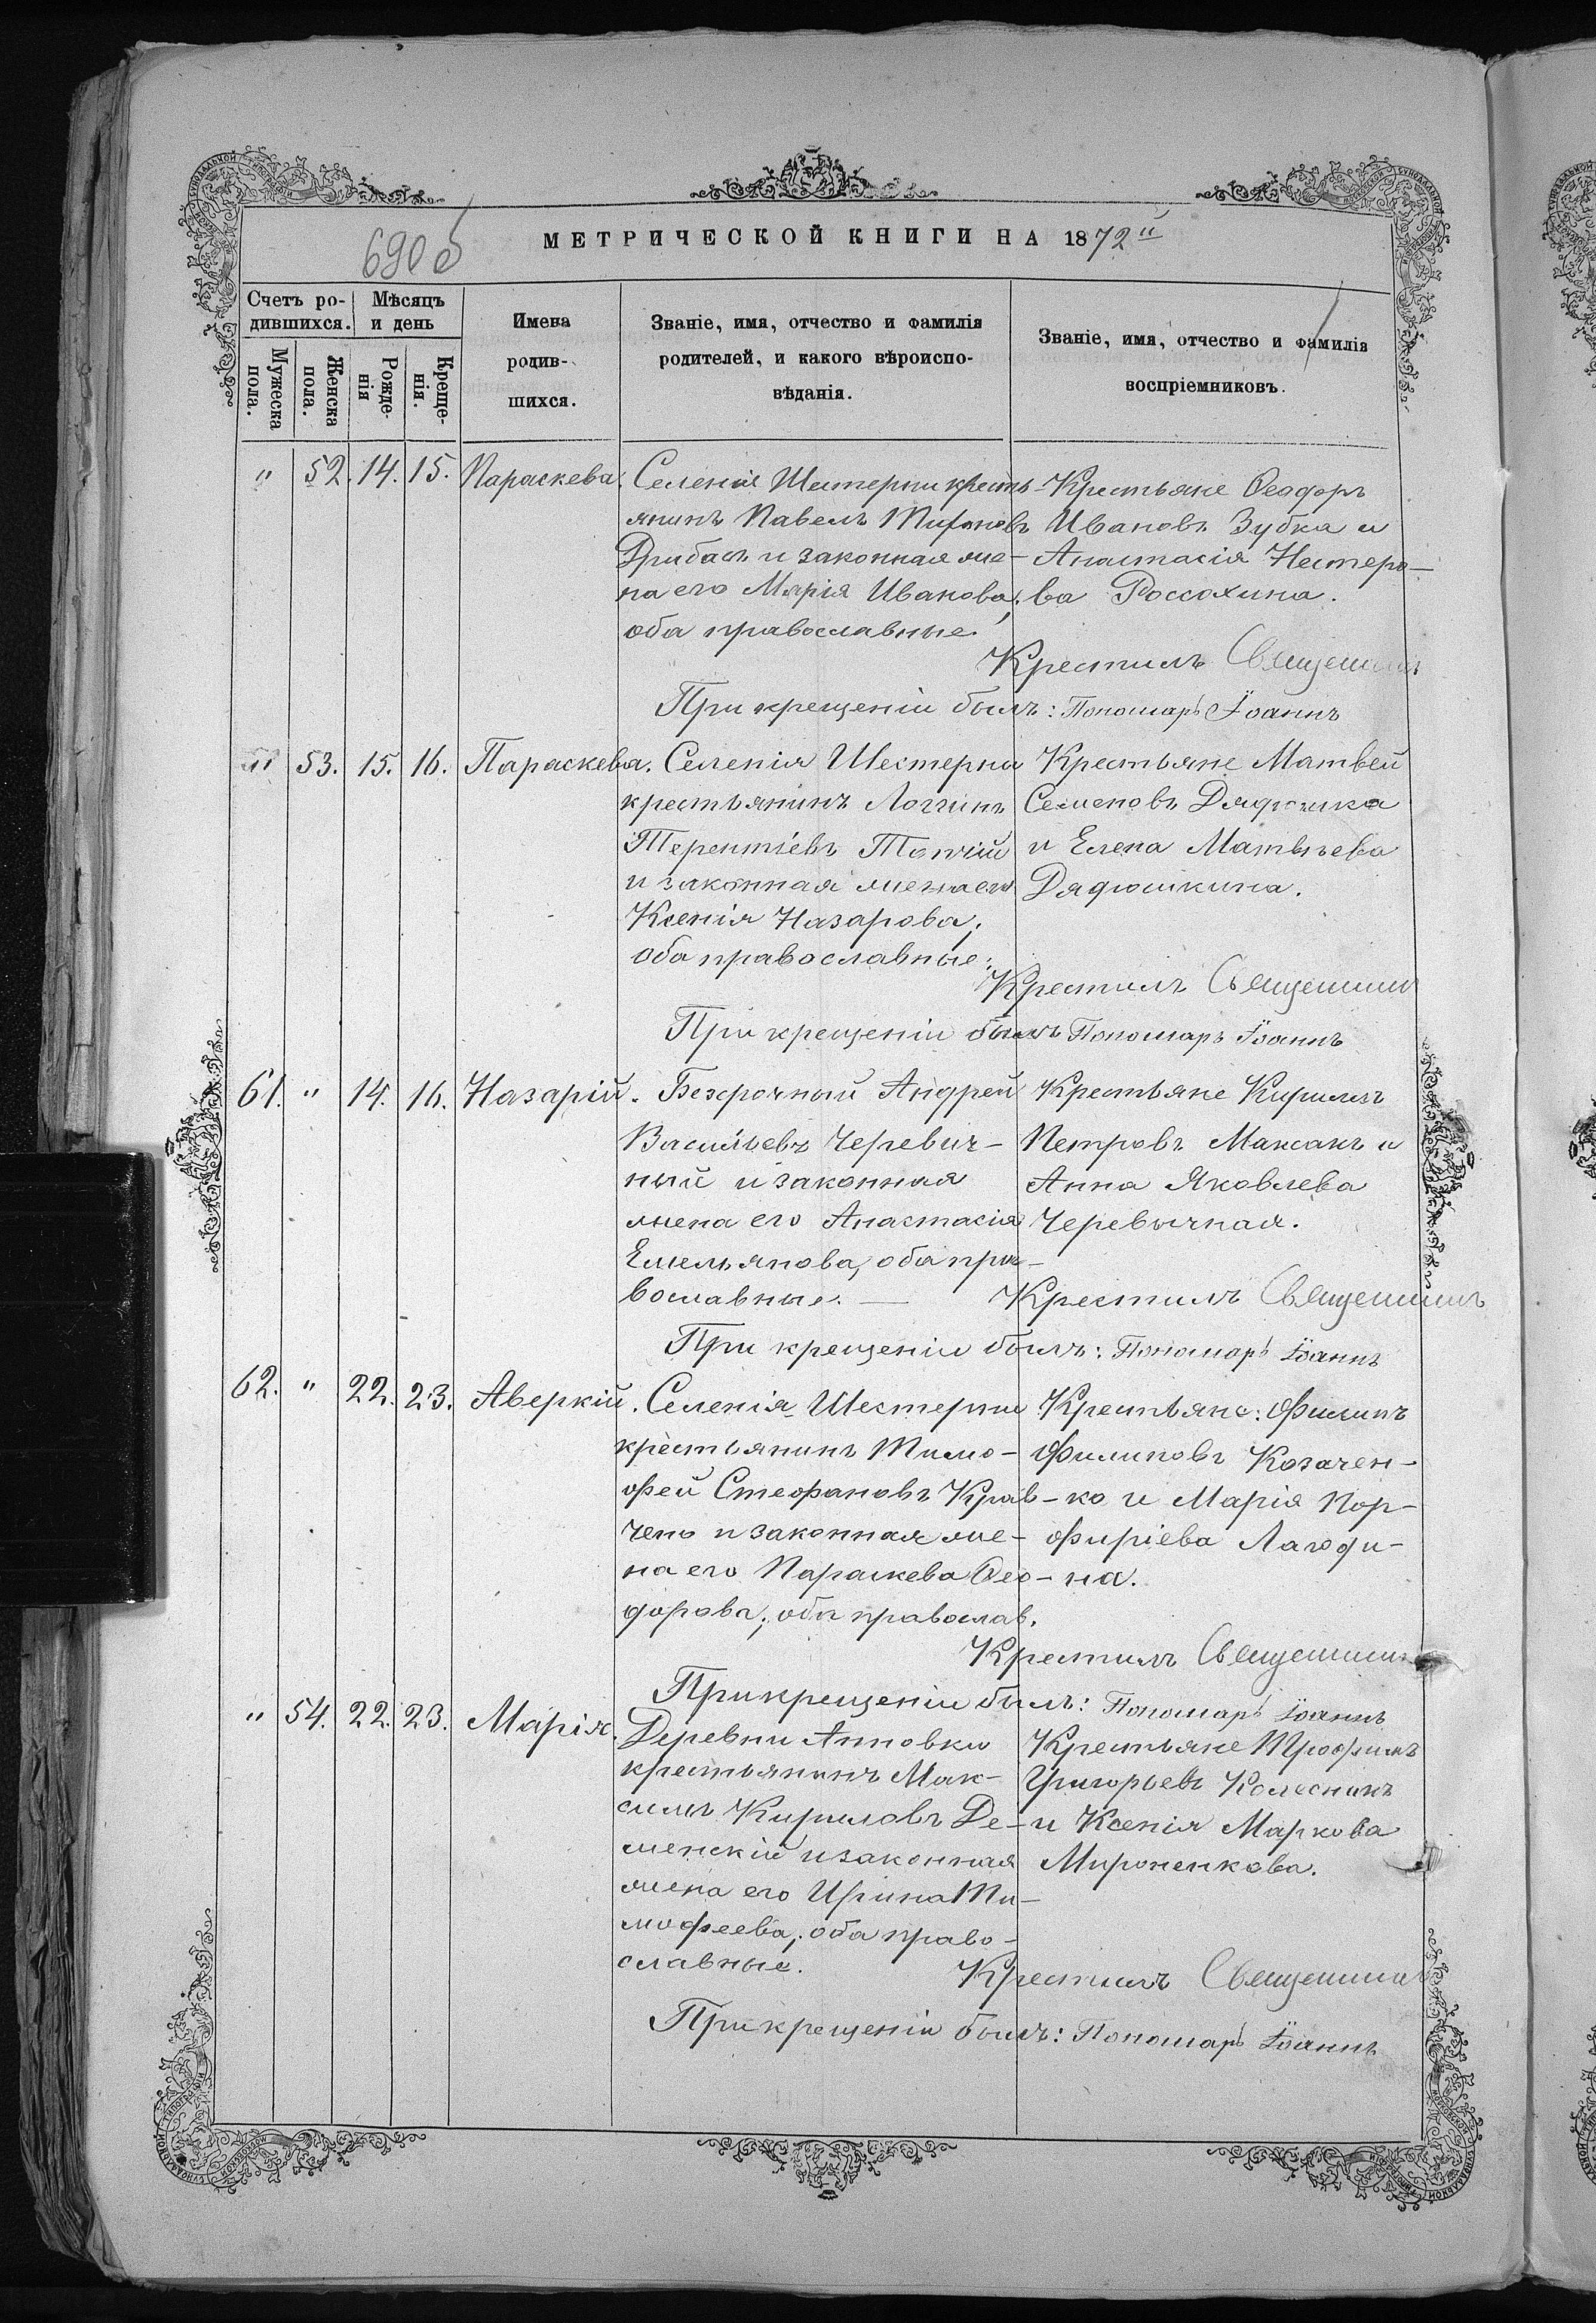 690 б
МЕТРИЧЕСКОЙ КНИГИ НА 1872й
Счетъ ро-
дившихся.
Мѣсяцъ
и день
Мужеска
пола.
Женска
пола.
Рожде-
нія
Креще-
нія.
Имена
родив-
шихся.
Званіе, имя, отчество и фамилія
родителей, и какого вѣроиспо-
вѣданія.
Званіе, имя, отчество и фамилія
воспріемниковъ.
" 52. 14. 15. Параскева.
Селенія Шестерни кресть-
янинъ Павелъ
и законная же-
на его Марія Иванова,
оба православные.
Крестьяне Ѳеодоръ
Ивановъ Зубка и
Анастасія Нестеро-
ва Россохина.
Крестилъ Священникъ
При крещеніи былъ: Пономарь Іоаннъ
" 53. 15. 16. Параскева.
Селенія Шестерни
крестьянинъ Логгинъ
Терентіевъ
и законная жена его
Ксенія Назарова,
оба православные.
Крестьяне Матвей
Семеновъ Дядюшка
и Елена Матвѣева
Дядюшкина.
Крестилъ Священник
При крещеніи былъ Пономарь Іоаннъ
61. " 14. 16. Назарій.
Безсрочный Андрей
Васильевъ Черевич-
ный и законная
жена его Анастасія
Емельянова, оба пра-
вославные. —
Крестьяне Кирилъ
Петровъ Максакъ и
Анна Яковлева
Черевычная.
Крестилъ Священникъ
При крещеніи былъ: Пономарь Іоаннъ
62. " 22. 23. Аверкій.
Селенія Шестерни
крестьянинъ Тимо-
фей Стефановъ Крав-
чень и законная же-
на его Параскева Ѳео-
дорова, оба православ.
Крестьяне: Филипъ
Филиповъ Козачен-
ко и Марія Пор-
фиріева Лагоди-
на.
Крестилъ Священник
При крещеніи былъ: Пономарь Іоаннъ
" 54. 22. 23. Марія.
Деревни Анновки
крестьянинъ Мак-
симъ Кириловъ Де-
менскій и законная
жена его Ирина Ти-
мофеева, оба право-
славные.
Крестьяне Трофимъ
Григорьевъ Колесникъ
и Ксенія Маркова
Мироненкова.
Крестилъ Священник
При крещеніи былъ: Пономарь Іоаннъ